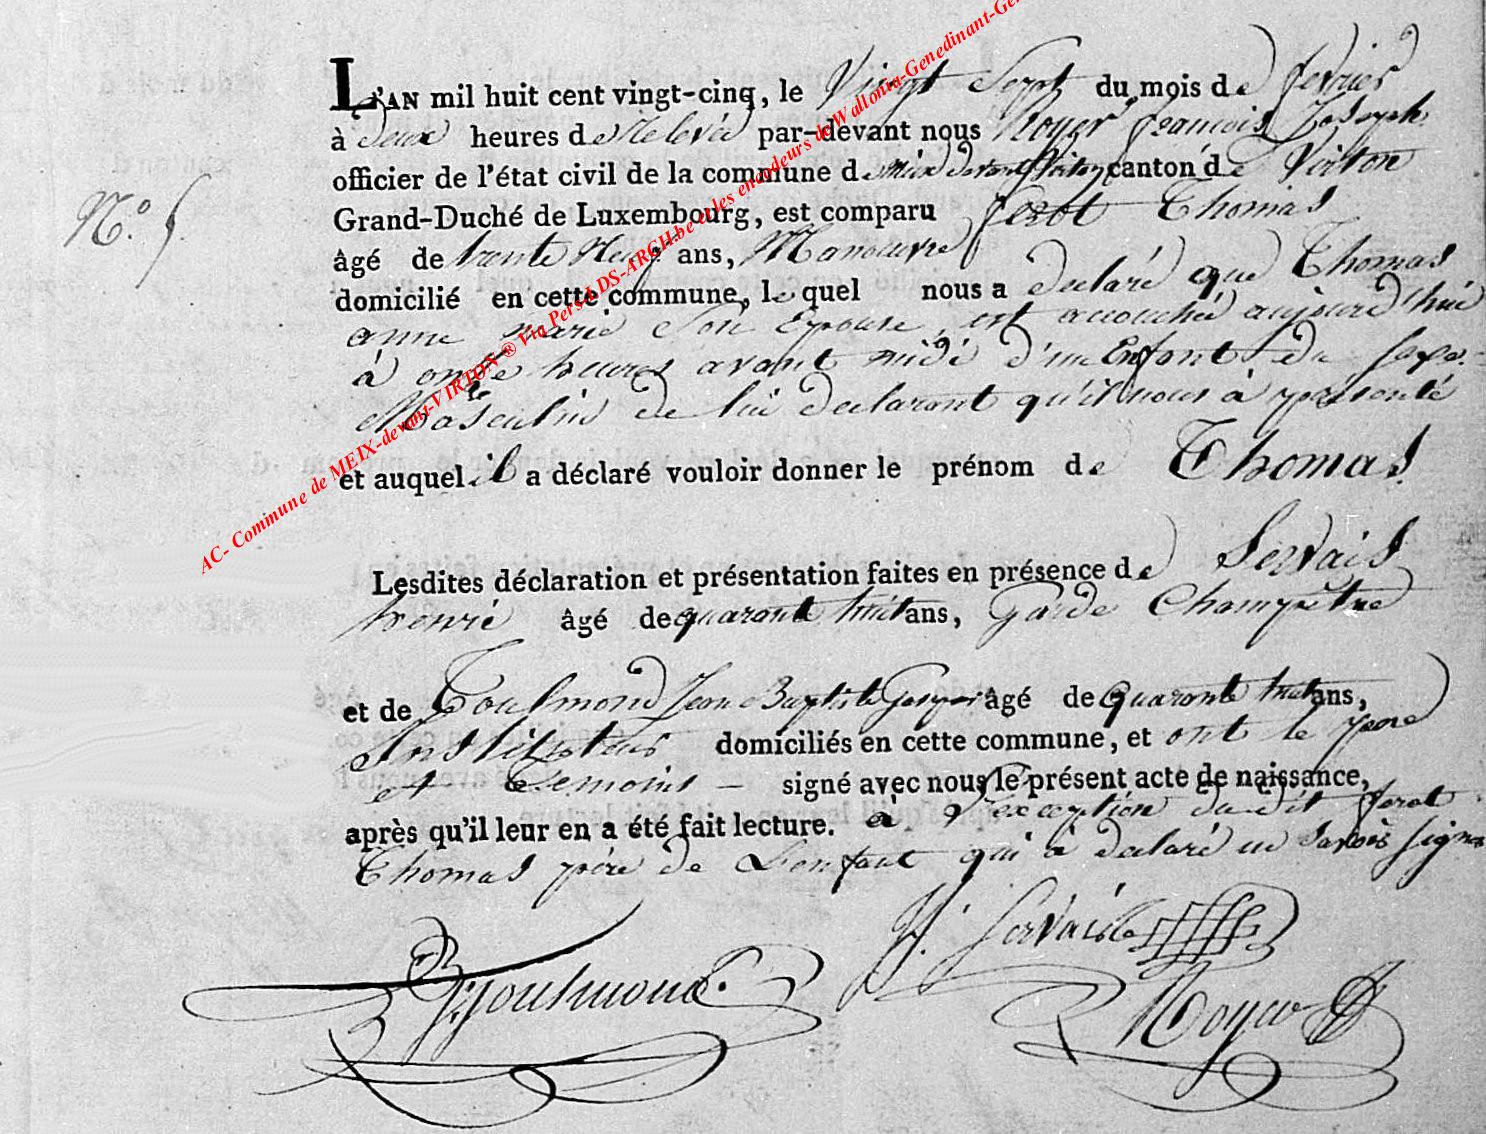 L'AN mil huit cent vingt-cinq, le Vingt Sept du mois de fevrier
à deux heures de Relevée par-devant nous Noyer francois Joseph
officier de l'état civil de la commune de meix devant Virton canton de Virton
N.° 5
Grand-Duché de Luxembourg, est comparu ferot Thomas
âgé de trente Neuf ans, Manoeuvre
domicilié en cette commune, le quel nous a declaré que Thomas
anne marie Son Epouse, est accouchée aujourd'hui
à onze heures avant midi d'un Enfant du Sexe
Masculin de lui declarant qu'il nous à presenté
et auquel il a déclaré vouloir donner le prénom de Thomas
Lesdites déclaration et présentation faites en présence de Servais
henri âgé de quarante huit ans, Garde Champêtre
et de Toulmond Jean Baptiste Gaspar âgé de quarante huit ans,
Instituteur domiciliés en cette commune, et ont le pere
et temoins — signé avec nous le présent acte de naissance,
après qu'il leur en a été fait lecture. à l'exception du dit ferot
Thomas père de L'enfant qui à declaré ne savoir signer
H. Servais
J. Toulmond.
Noyer
AC- Commune de MEIX-devant-VIRTON ® Via Pers-LDS-ARCH.be et les encodeurs de Wallonia-Genedinant-Ge